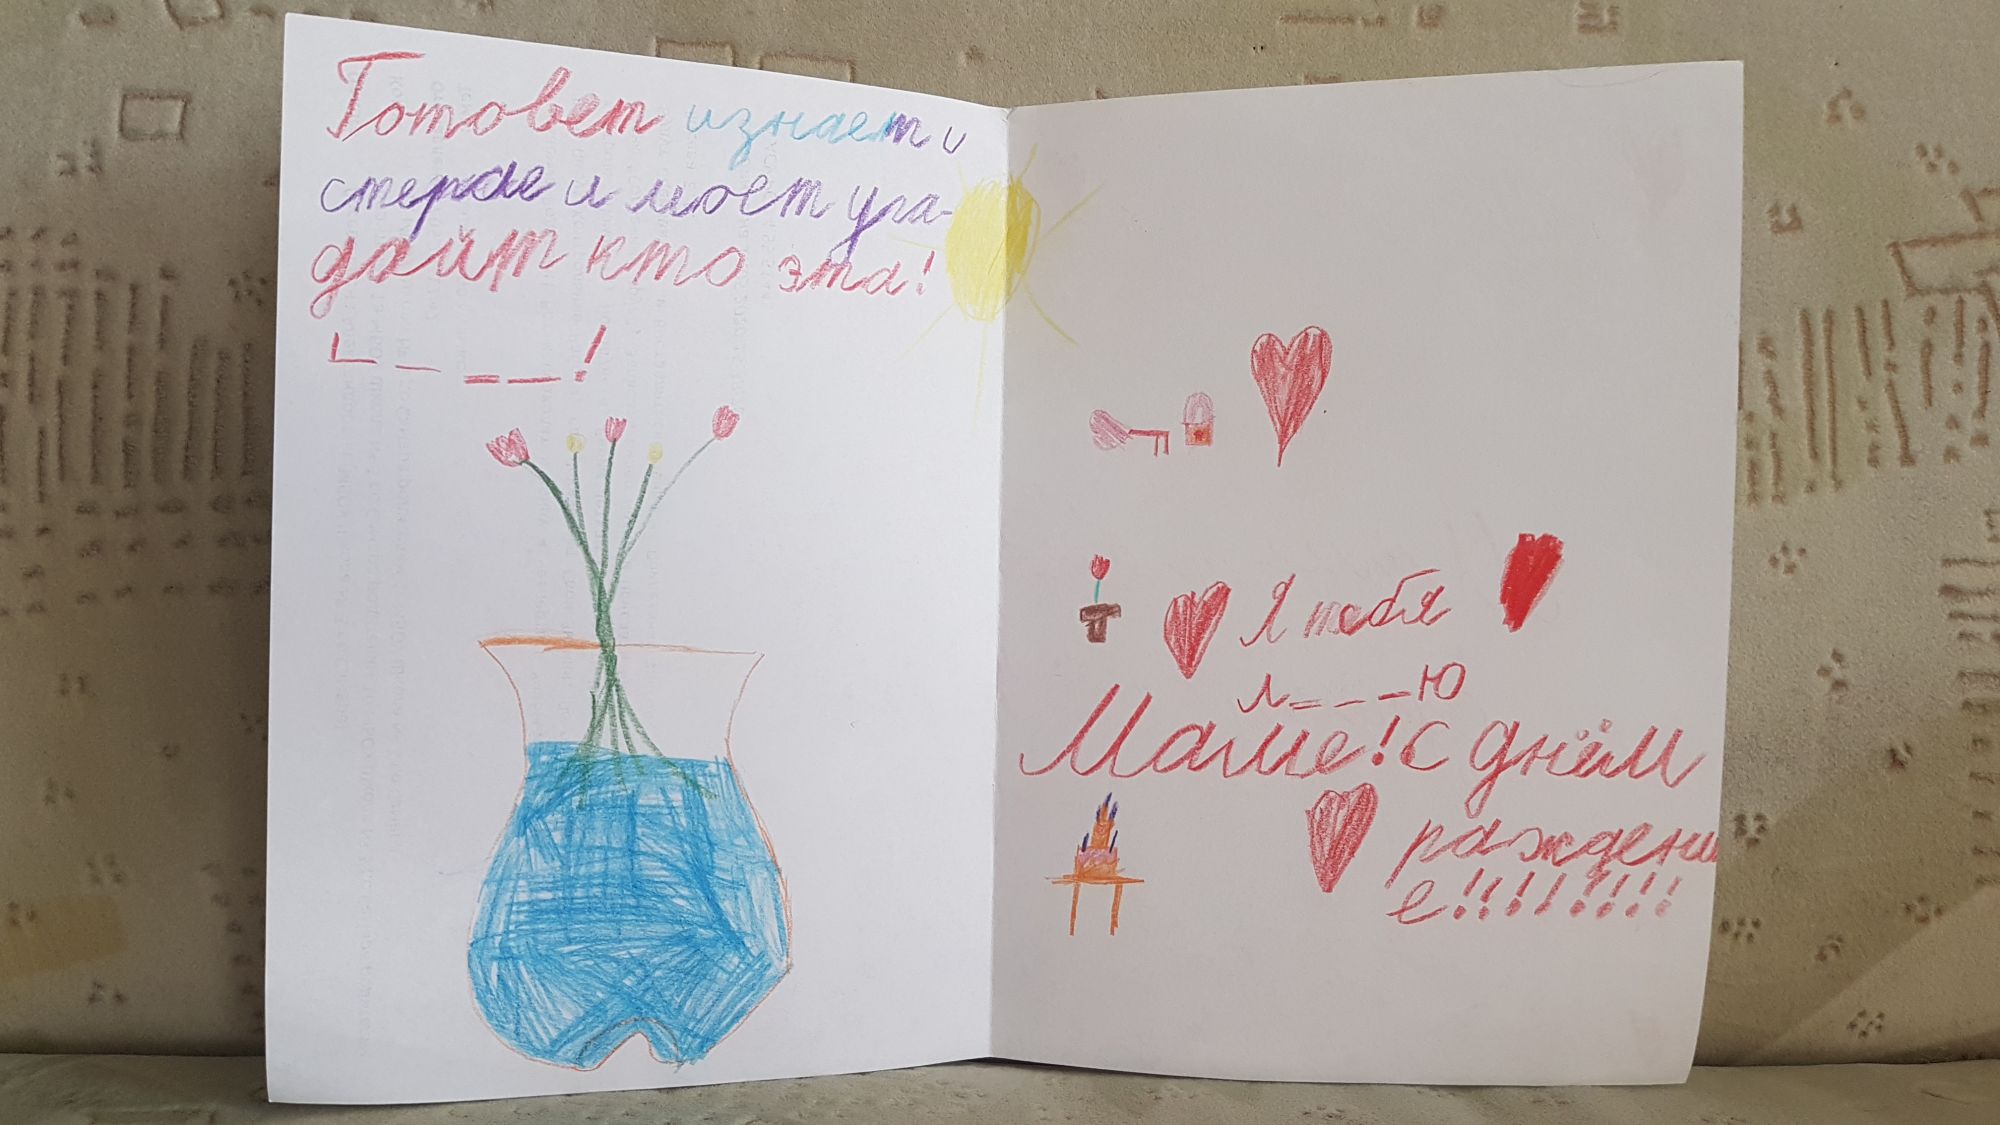 Готовет изнает и
стерае и моет уга-
дайт кто эта!
_ _ _ _!
Я тебя
л_ _ _Ю
Маме! С днём
раждени
е!!!!!!!!